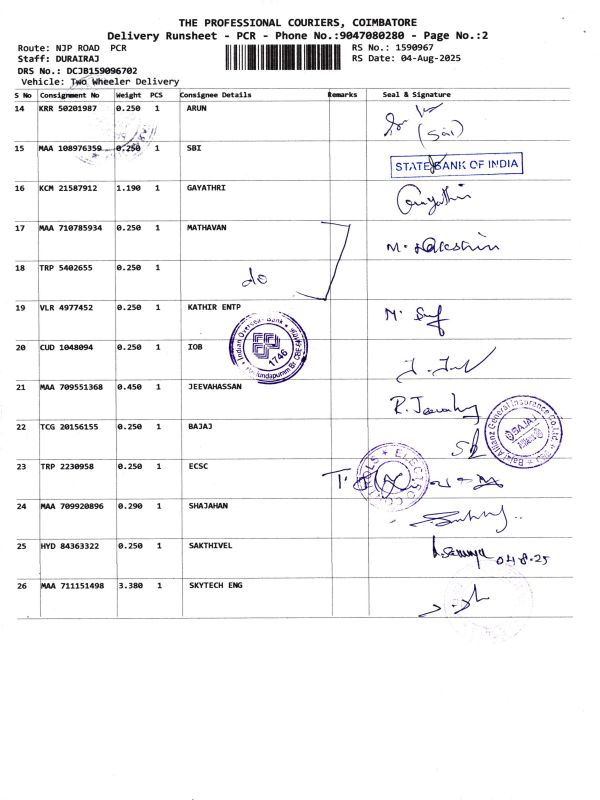 THE PROFESSIONAL COURIERS, COIMBATORE
Delivery Runsheet - PCR - Phone No.:9047080280 - Page No.:2
Route: NJP ROAD PCR
RS No.: 1590967
Staff: DURAIRAJ
RS Date: 04-Aug-2025
DRS No.: DCJB159096702
Vehicle: Two Wheeler Delivery
S No Consignment No Weight PCS Consignee Details Remarks Seal & Signature
14 KRR 50201987 0.250 1 ARUN
(Sai)
15 MAA 108976359 0.250 1 SBI
STATE BANK OF INDIA
16 KCM 21587912 1.190 1 GAYATHRI
Gayathri
17 MAA 710785934 0.250 1 MATHAVAN
M.
18 TRP 5402655 0.250 1
do
19 VLR 4977452 0.250 1 KATHIR ENTP
M.
Indian Overseas Bank
1746
20 CUD 1048094 0.250 1 IOB
21 MAA 709551368 0.450 1 JEEVAHASSAN
R.
Bajaj Allianz General Insurance Co.Ltd.
BAJAJ
22 TCG 20156155 0.250 1 BAJAJ
23 TRP 2230958 0.250 1 ECSC
24 MAA 709920896 0.290 1 SHAJAHAN
25 HYD 84363322 0.250 1 SAKTHIVEL
04.8.25
26 MAA 711151498 3.380 1 SKYTECH ENG